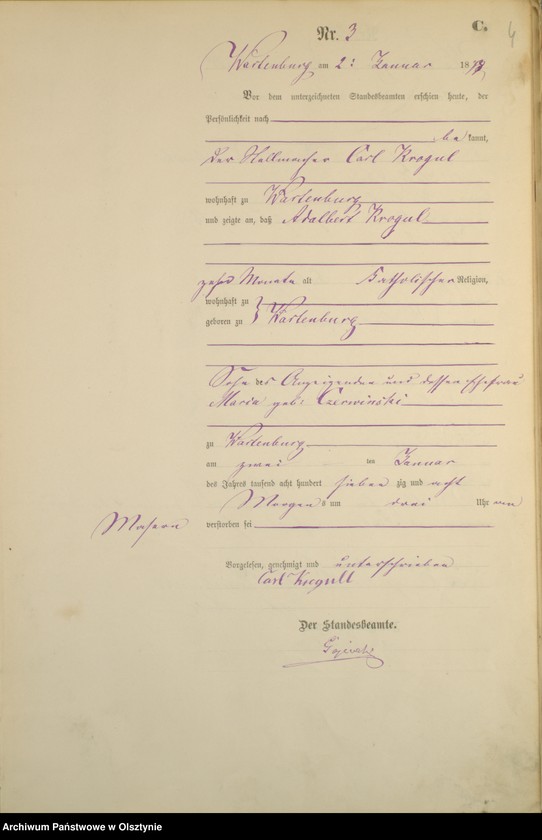 Nr. 3
C.
4
Wartenburg am 2: Januar 1878
Vor dem unterzeichneten Standesbeamten erschien heute, der
Persönlichkeit nach
bekannt,
der Stellmacher Carl Krogul
wohnhaft zu Wartenburg
und zeigte an, daß Adalbert Krogul
zehn Monate alt Katholischer Religion,
wohnhaft zu
geboren zu Wartenburg
Sohn des Anzeigenden und dessen Ehefrau
Maria geb: Czerwinski
zu Wartenburg
am zwei ten Januar
des Jahres tausend acht hundert sieben zig und acht
Morgens um drei Uhr
Masern
verstorben sei
Vorgelesen, genehmigt und unterschrieben
Carl Krogull
Der Standesbeamte.
Archiwum Państwowe w Olsztynie